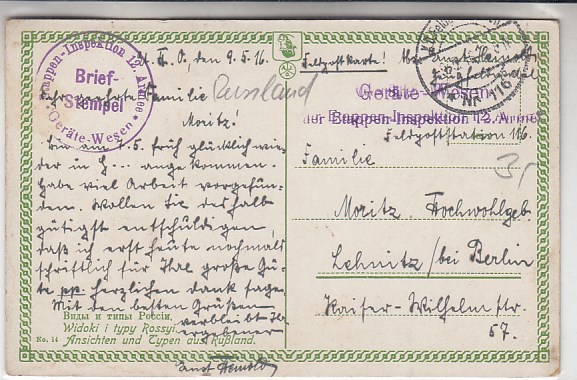 Etappen-Inspektion 12. Armee
Brief-
Stempel
* Geräte-Wesen *
d. 9. 5. 16.
Russland
Sehr verehrte Familie
Moritz!
Bin am 7. 5. früh glücklich wie-
der in G... angekommen.
Habe viel Arbeit vorgefun-
den. Wollen Sie deshalb
gütigst entschuldigen,
daß ich erst heute nochmals
schriftlich für Ihre große Gü-
te pp. herzlichen Dank sage.
Mit den besten Grüßen
verbleibt Ihr
ergebener
Виды и типы Россіи.
Widoki i typy Rossyi.
No. 14 Ansichten und Typen aus Rußland.
Feldpostkarte!
Nr. 116
Geräte-Wesen
der Etappen-Inspektion 12. Armee
Feldpoststation 116.
Familie
Moritz, Hochwohlgeb.
Lehnitz / bei Berlin
Kaiser-Wilhelm str.
57.